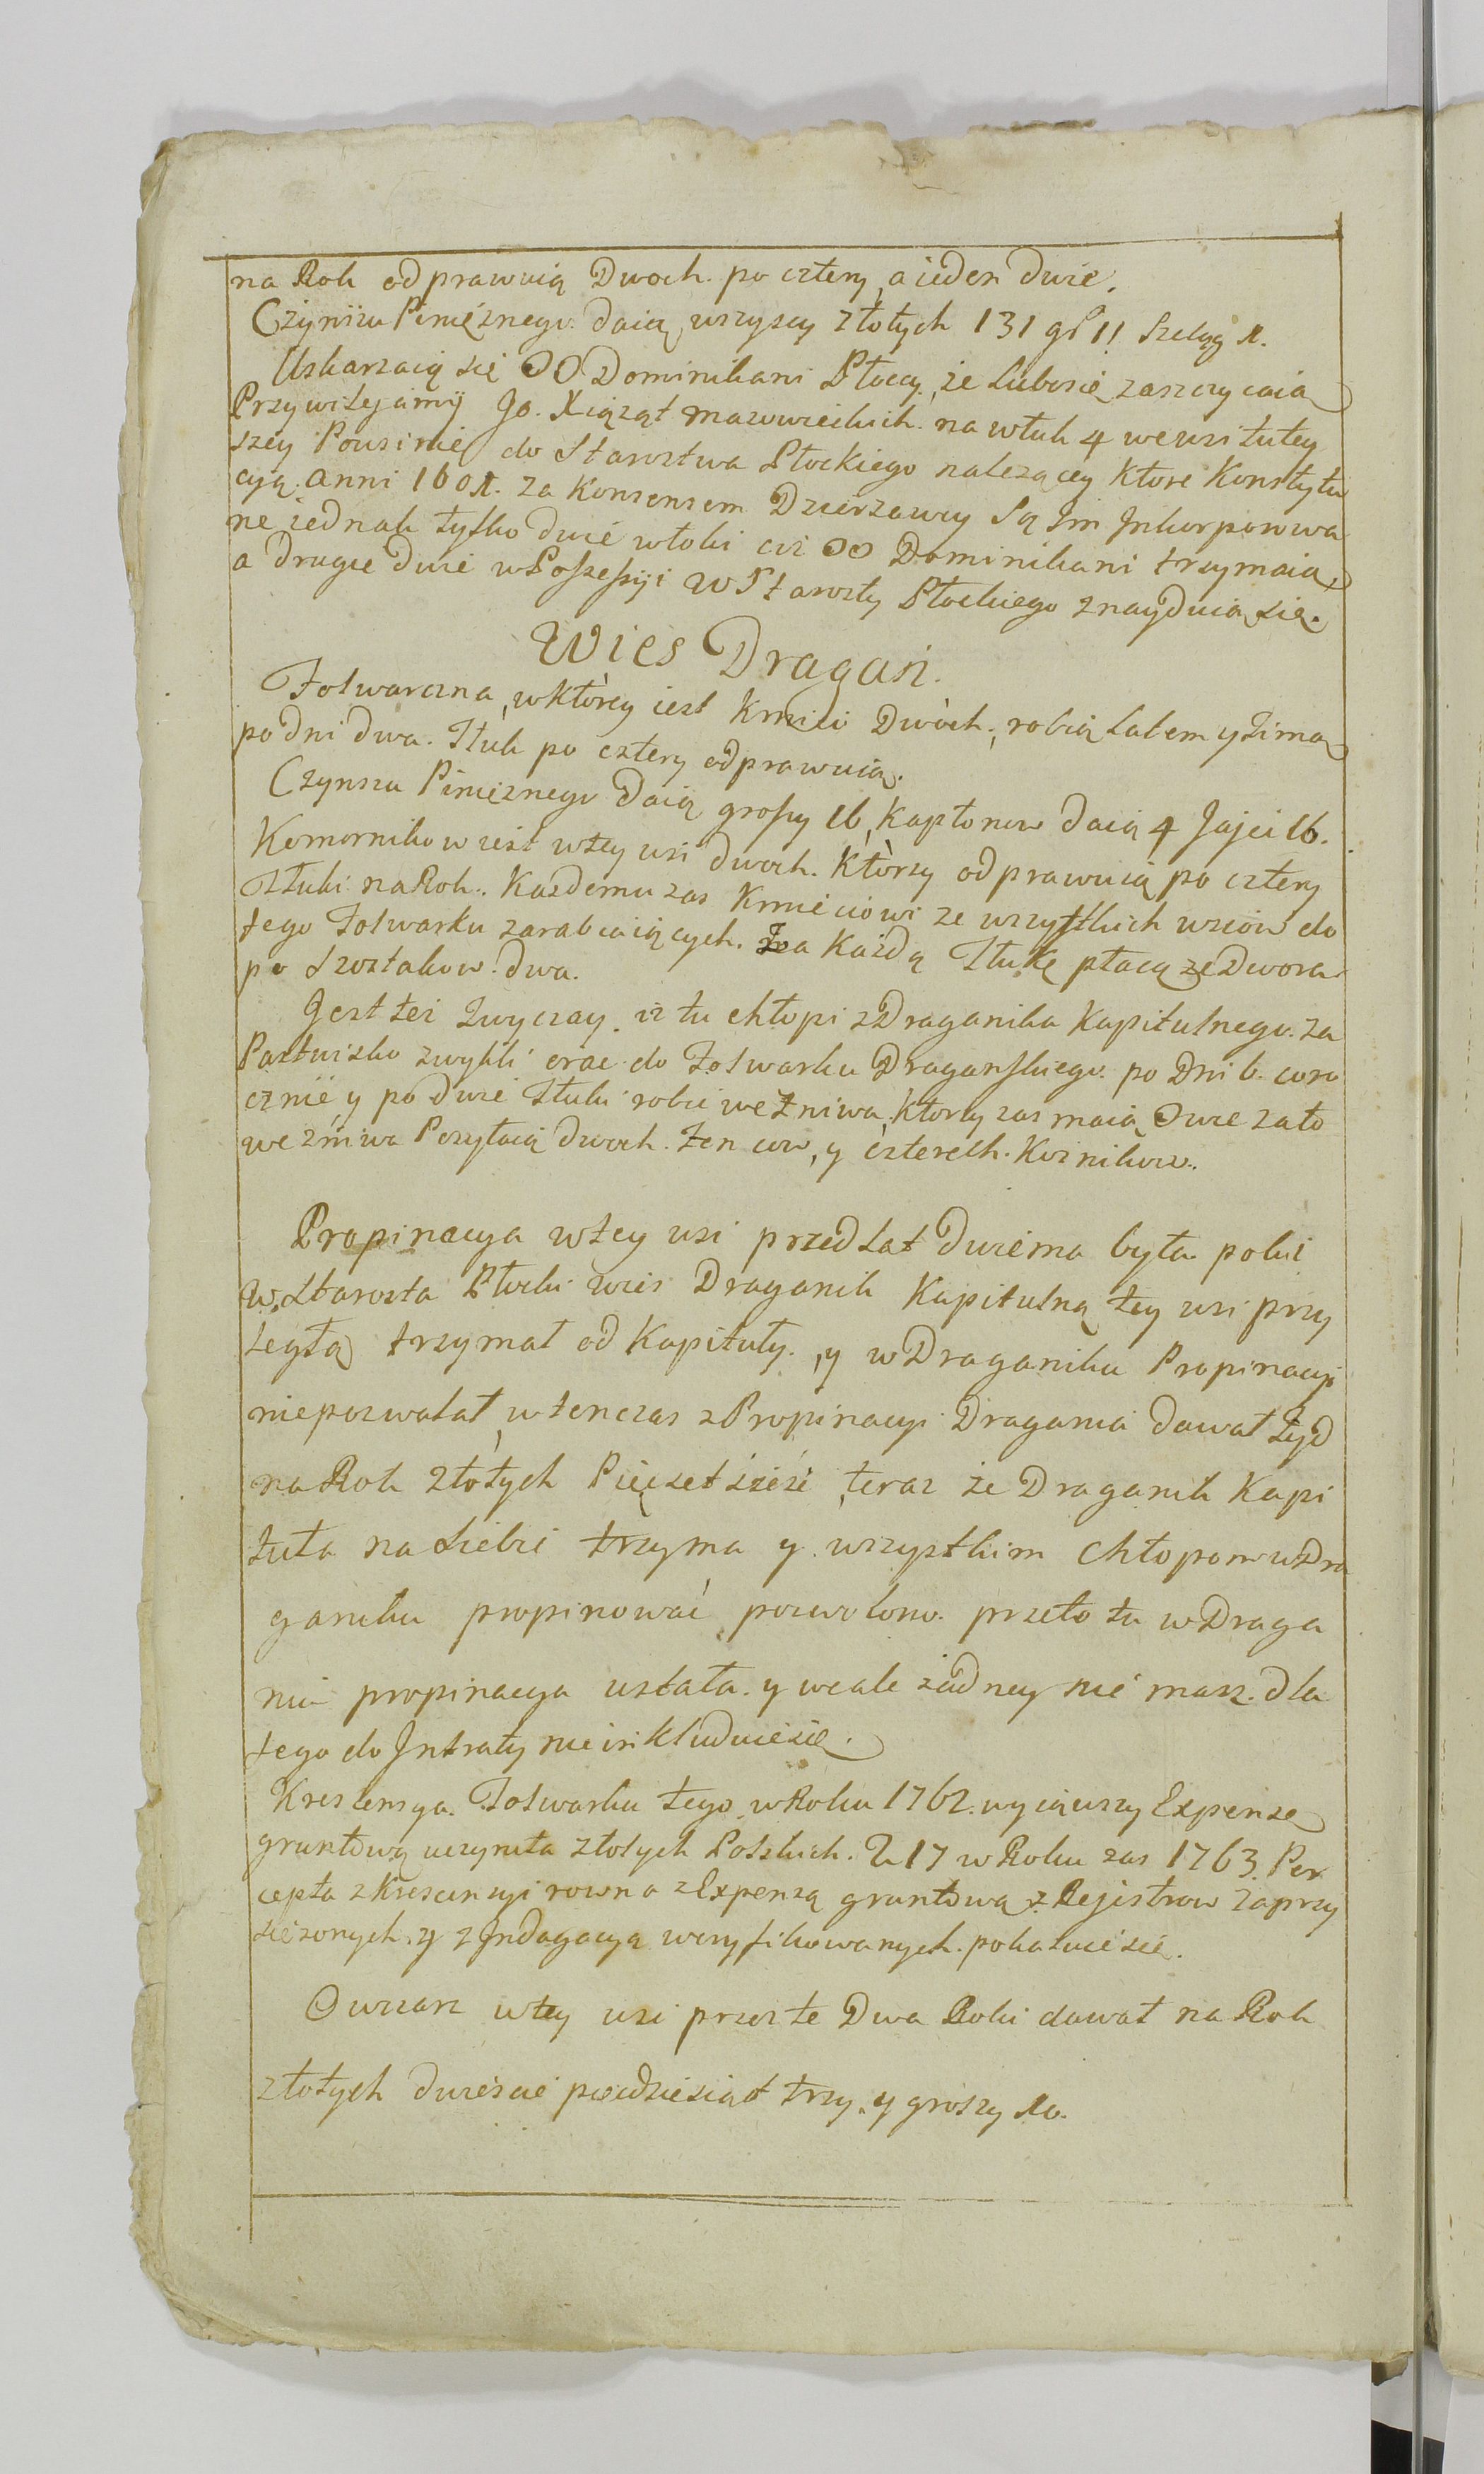 na Rok odprawuią Dwoch. po cztery, a ieden dwie.
Czynszu Pinięznego. daią wszyscy złotych 131 gr 11 szeląg 1.
Uskarzaią się OO Dominikani Płoccy, że lubo się zaszczycaią
Przywilejamij Jo. Xiąząt mazowieckich. na włuk 4 we wsi tutey
szey Powsinie do Starostwa Płockiego nalezącey Ktore Konstytu
cyą. anni 1601. za Konsensem Dzierzawcy Są Im Inkorporowa
ne iednak tylko dwie włoki ciż OO Dominikani trzymaią,
a drugie dwie w Possessyi W Starosty Płockiego znayduią się.
Wies Dragań.
Folwarczna, w ktorey iest Kmieci Dwòch, robią latem y zimą
po dni dwa. Tłuk po cztery odprawuią.
Czynszu Pinięznego daią groszy 16, Kapłonow daią 4 Jajei 16.
Komornikow iest w tey wsi dwoch. Ktòrzy odprawuią po cztery
Tłuki na Rok. Kazdemu zas Kmieciowi ze wszystkich wsiow do
tego Folwarku zarabiaiących. Za Kazdą Tłukę płacą ze Dwora
po Szostakow. dwa.
Jest też Zwyczay. iż tu chłopi z Draganika Kapitulnego. za
Pastwisko zwykli orac do Folwarku Draganskiego. po Dni 6. coro
cznie, y po dwie Tłuki robic we Zniwa, ktorzy zas maią Owce za to
we zniwa Posyłaią dwoch. Zencow, y czterech. Kosnikow.
Propinacya w tey wsi przed Lat dwiema była poki
W. Starosta Płocki wies Draganik Kapitulną tey wsi przy
ległą trzymał od Kapituły., y w Draganiku Propinacyi
niepozwalał, wtenczas z Propinacyi Dragania dawał Żyd
na Rok złòtych Pięcset szèsć, teraz że Draganik Kapi
tuła na siebie trzyma y. wszystkim chłopom w Dra
ganiku propinować pozwolono. przeto tu w Draga
niu propinacya ustała. y wcale żadney nie masz. dla
tego do Intraty nie inkluduie się.
Krescensya. Folwarku tego w Roku 1762. wyiąwszy Expensę
gruntową uczyniła złotych Polskich. 217 w Roku zas 1763. Per
cepta z Krescensyi rowna z Expensą gruntową z Rejistrow zaprzy
siezonych. y z Indagacyą weryfikowanych. pokazuie się.
Owczarz w tey wsi przez te Dwa Roki dawał na Rok
złotych dwiescie pięcdziesiąt trzy. y groszy 10.